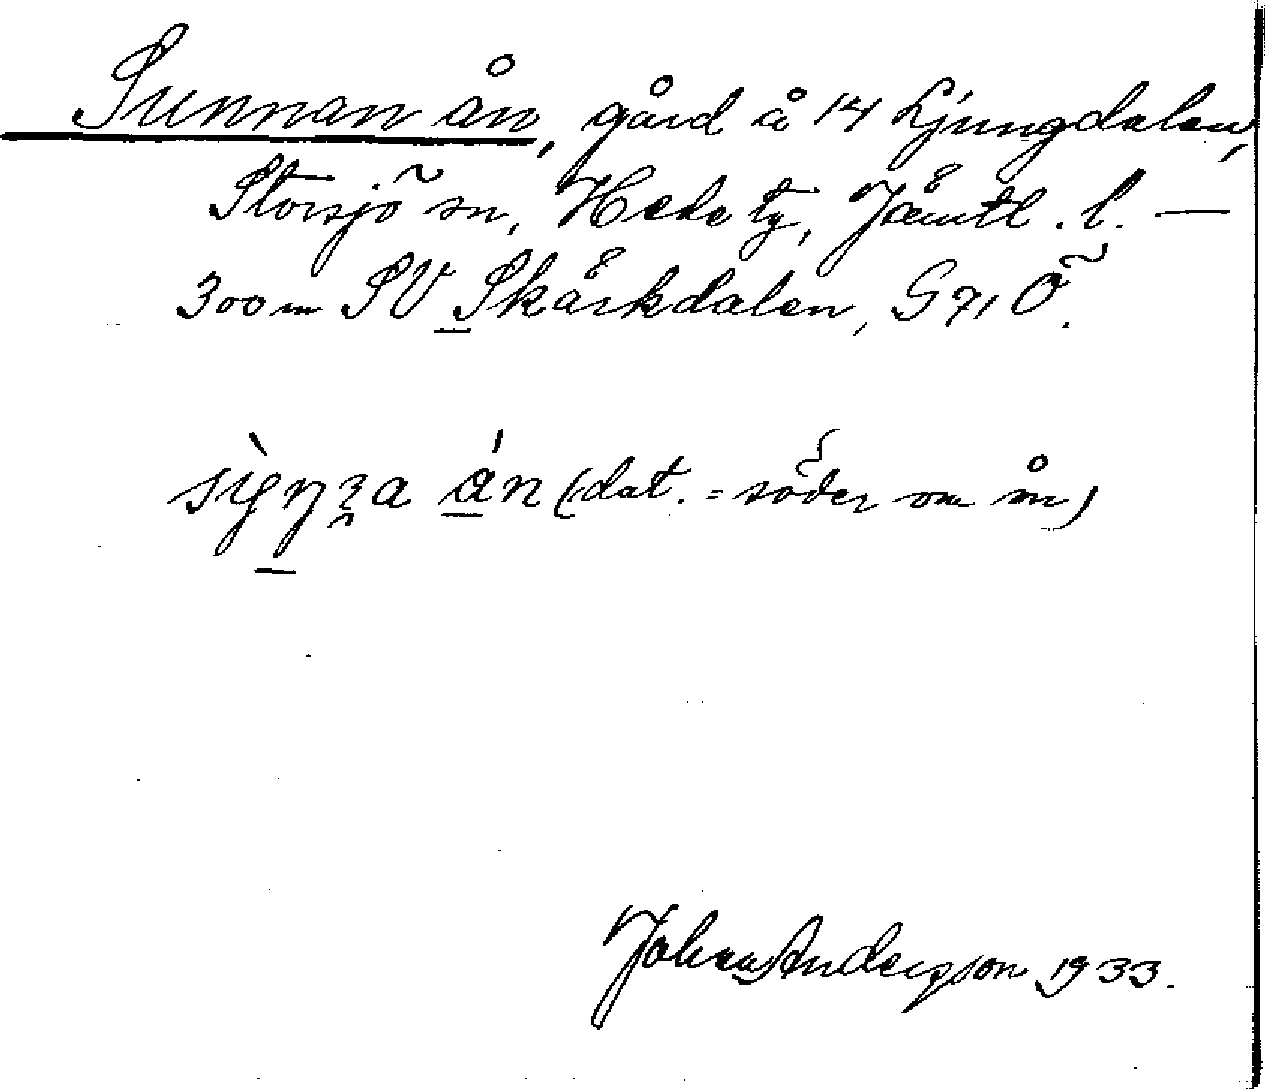 Sunnan ån, gård å 14 Ljungdalen,
Storsjö sn, Hede tg, Jämtl. l. —
300 m SV Skärkdalen, G 71 Ö.
(dat. = söder om ån)
Johan Anderson 1933.